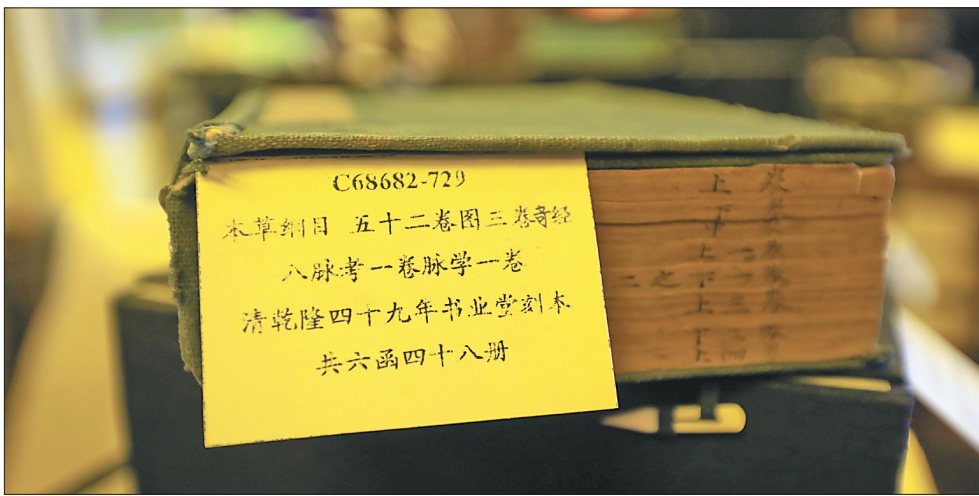 C68682-729
本草纲目 五十二卷图三卷奇经
八脉考一卷脉学一卷
清乾隆四十九年书业堂刻本
共六函四十八册
上
下
上
二之下
上
下
上